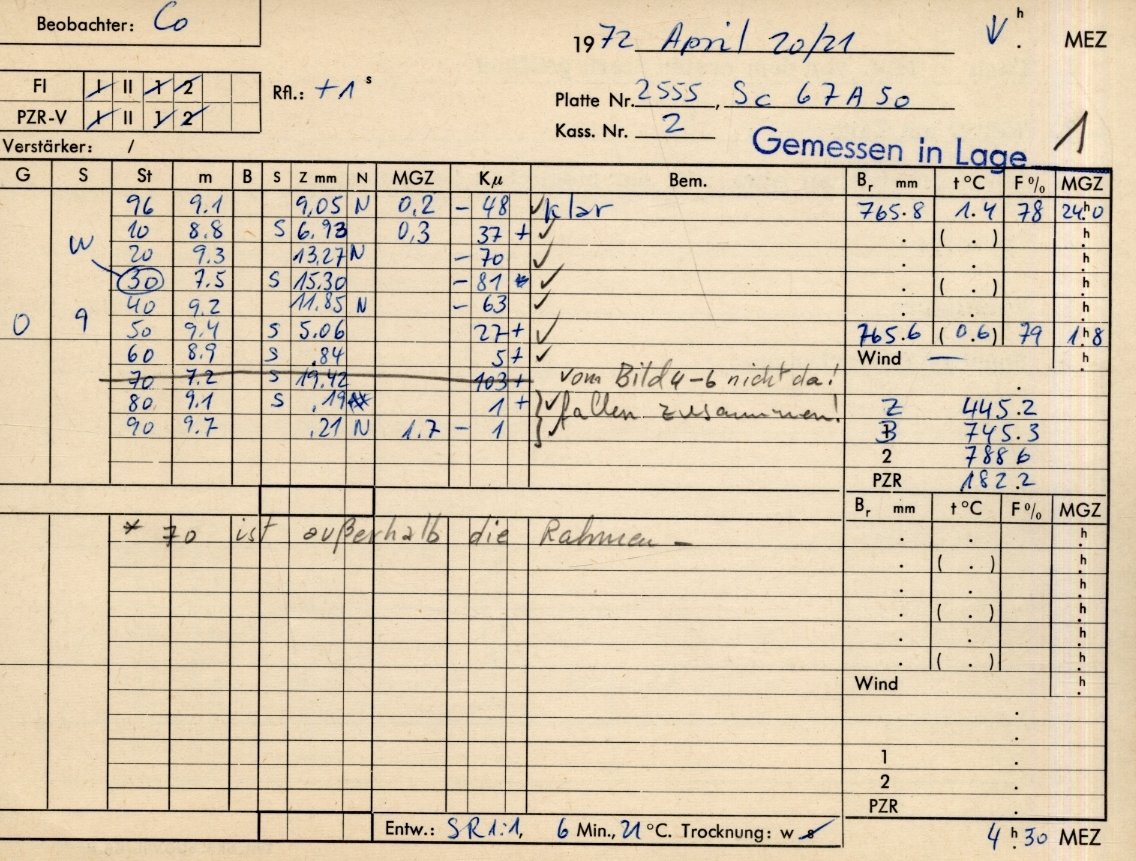 Beobachter: Co
1972 April 20/21 h . MEZ
FI I II 1 2
Rfl.: +1 s
PZR-V I II 1 2
Platte Nr. 2555, Sc 67A50
Kass. Nr. 2
Verstärker: /
Gemessen in Lage 1
G S St m B S Z mm N MGZ Kμ Bem. Br mm t °C F % MGZ
96 9.1 9,05 N 0,2 - 48 ✓ klar 765.8 1.4 78 24h0
10 8.8 S 6.93 0,3 37 + ✓ . ( . ) h
W 20 9.3 13,27 N - 70 ✓ . . h
30 7.5 S 15.30 - 81 ✓ . ( . ) h
40 9.2 11.85 N - 63 ✓ . . h
0 9 50 9.4 S 5.06 27 + ✓ 765.6 (0.6) 79 1h8
60 8.9 S .84 5 + ✓ Wind — h
70 7.2 S 19,42 103 + vom Bild 4-6 nicht da!
80 9.1 S .19 1 + ✓ fallen zusammen! Z 445.2
90 9.7 .21 N 1.7 - 1 ✓ B 745.3
2 788 6
PZR 182.2
Br mm t °C F % MGZ
* 70 ist außerhalb die Rahmen - . . h
. ( . ) h
. . h
. ( . ) h
. . h
. ( . ) h
Wind h
1 .
2 .
PZR .
Entw.: SR 1:1, 6 Min., 21 °C. Trocknung: w s
4 h 30 MEZ